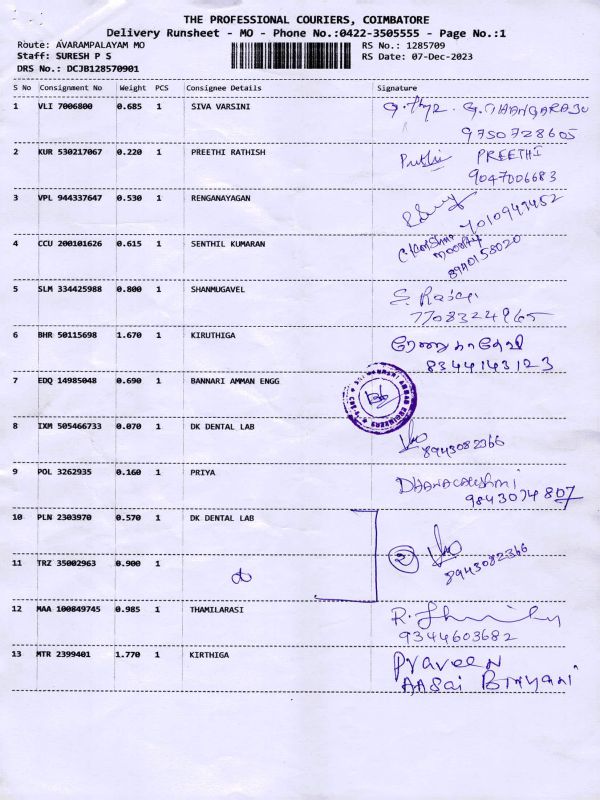 THE PROFESSIONAL COURIERS, COIMBATORE
Delivery Runsheet - MO - Phone No.:0422-3505555 - Page No.:1
Route: AVARAMPALAYAM MO RS No.: 1285709
Staff: SURESH P S RS Date: 07-Dec-2023
DRS No.: DCJB128570901
S No Consignment No Weight PCS Consignee Details Signature
1 VLI 7006800 0.685 1 SIVA VARSINI G. THANGARAJU
9750728605
2 KUR 530217067 0.220 1 PREETHI RATHISH PREETHI
9047006683
3 VPL 944337647 0.530 1 RENGANAYAGAN
4 CCU 200101626 0.615 1 SENTHIL KUMARAN
8940158020
5 SLM 334425988 0.800 1 SHANMUGAVEL
7708324965
6 BHR 50115698 1.670 1 KIRUTHIGA ரேணுகாதேவி
8344143123
7 EDQ 14985048 0.690 1 BANNARI AMMAN ENGG
8 IXM 505466733 0.070 1 DK DENTAL LAB
8943082366
9 POL 3262935 0.160 1 PRIYA
9843074807
10 PLN 2303970 0.570 1 DK DENTAL LAB
2
8943082366
11 TRZ 35002963 0.900 1
12 MAA 100849745 0.985 1 THAMILARASI
9344603682
13 MTR 2399401 1.770 1 KIRTHIGA Praveen
AASai